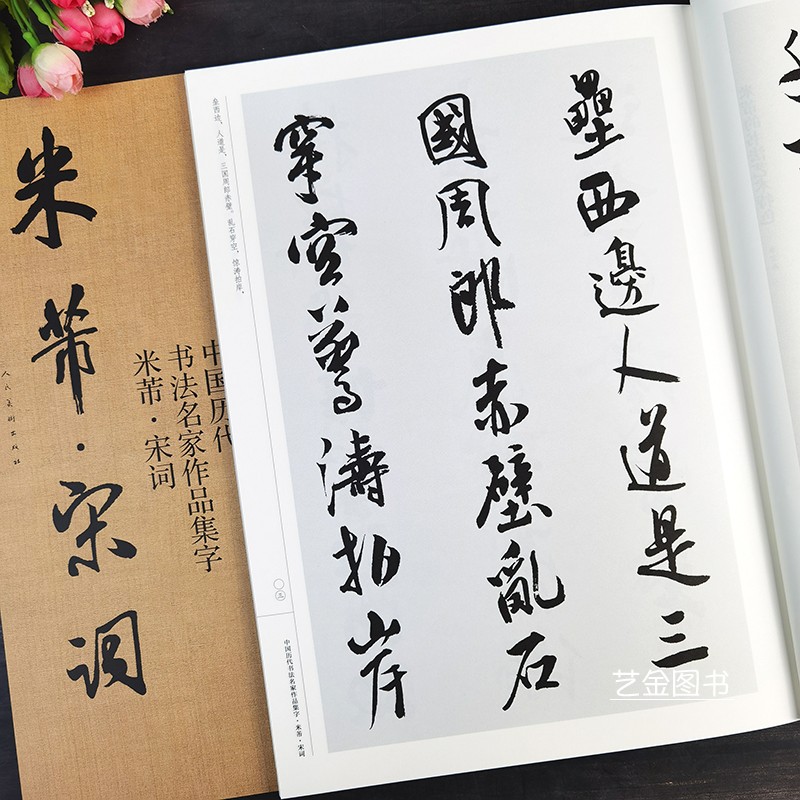 壘西邊人道是三
國周郎赤壁亂石
穿空驚濤拍岸
垒西边，人道是，三国周郎赤壁。乱石穿空，惊涛拍岸，
〇三
中国历代书法名家作品集字·米芾·宋词
中国历代
书法名家作品集字
米芾·宋词
米芾·宋詞
人民美術出版社
艺金图书